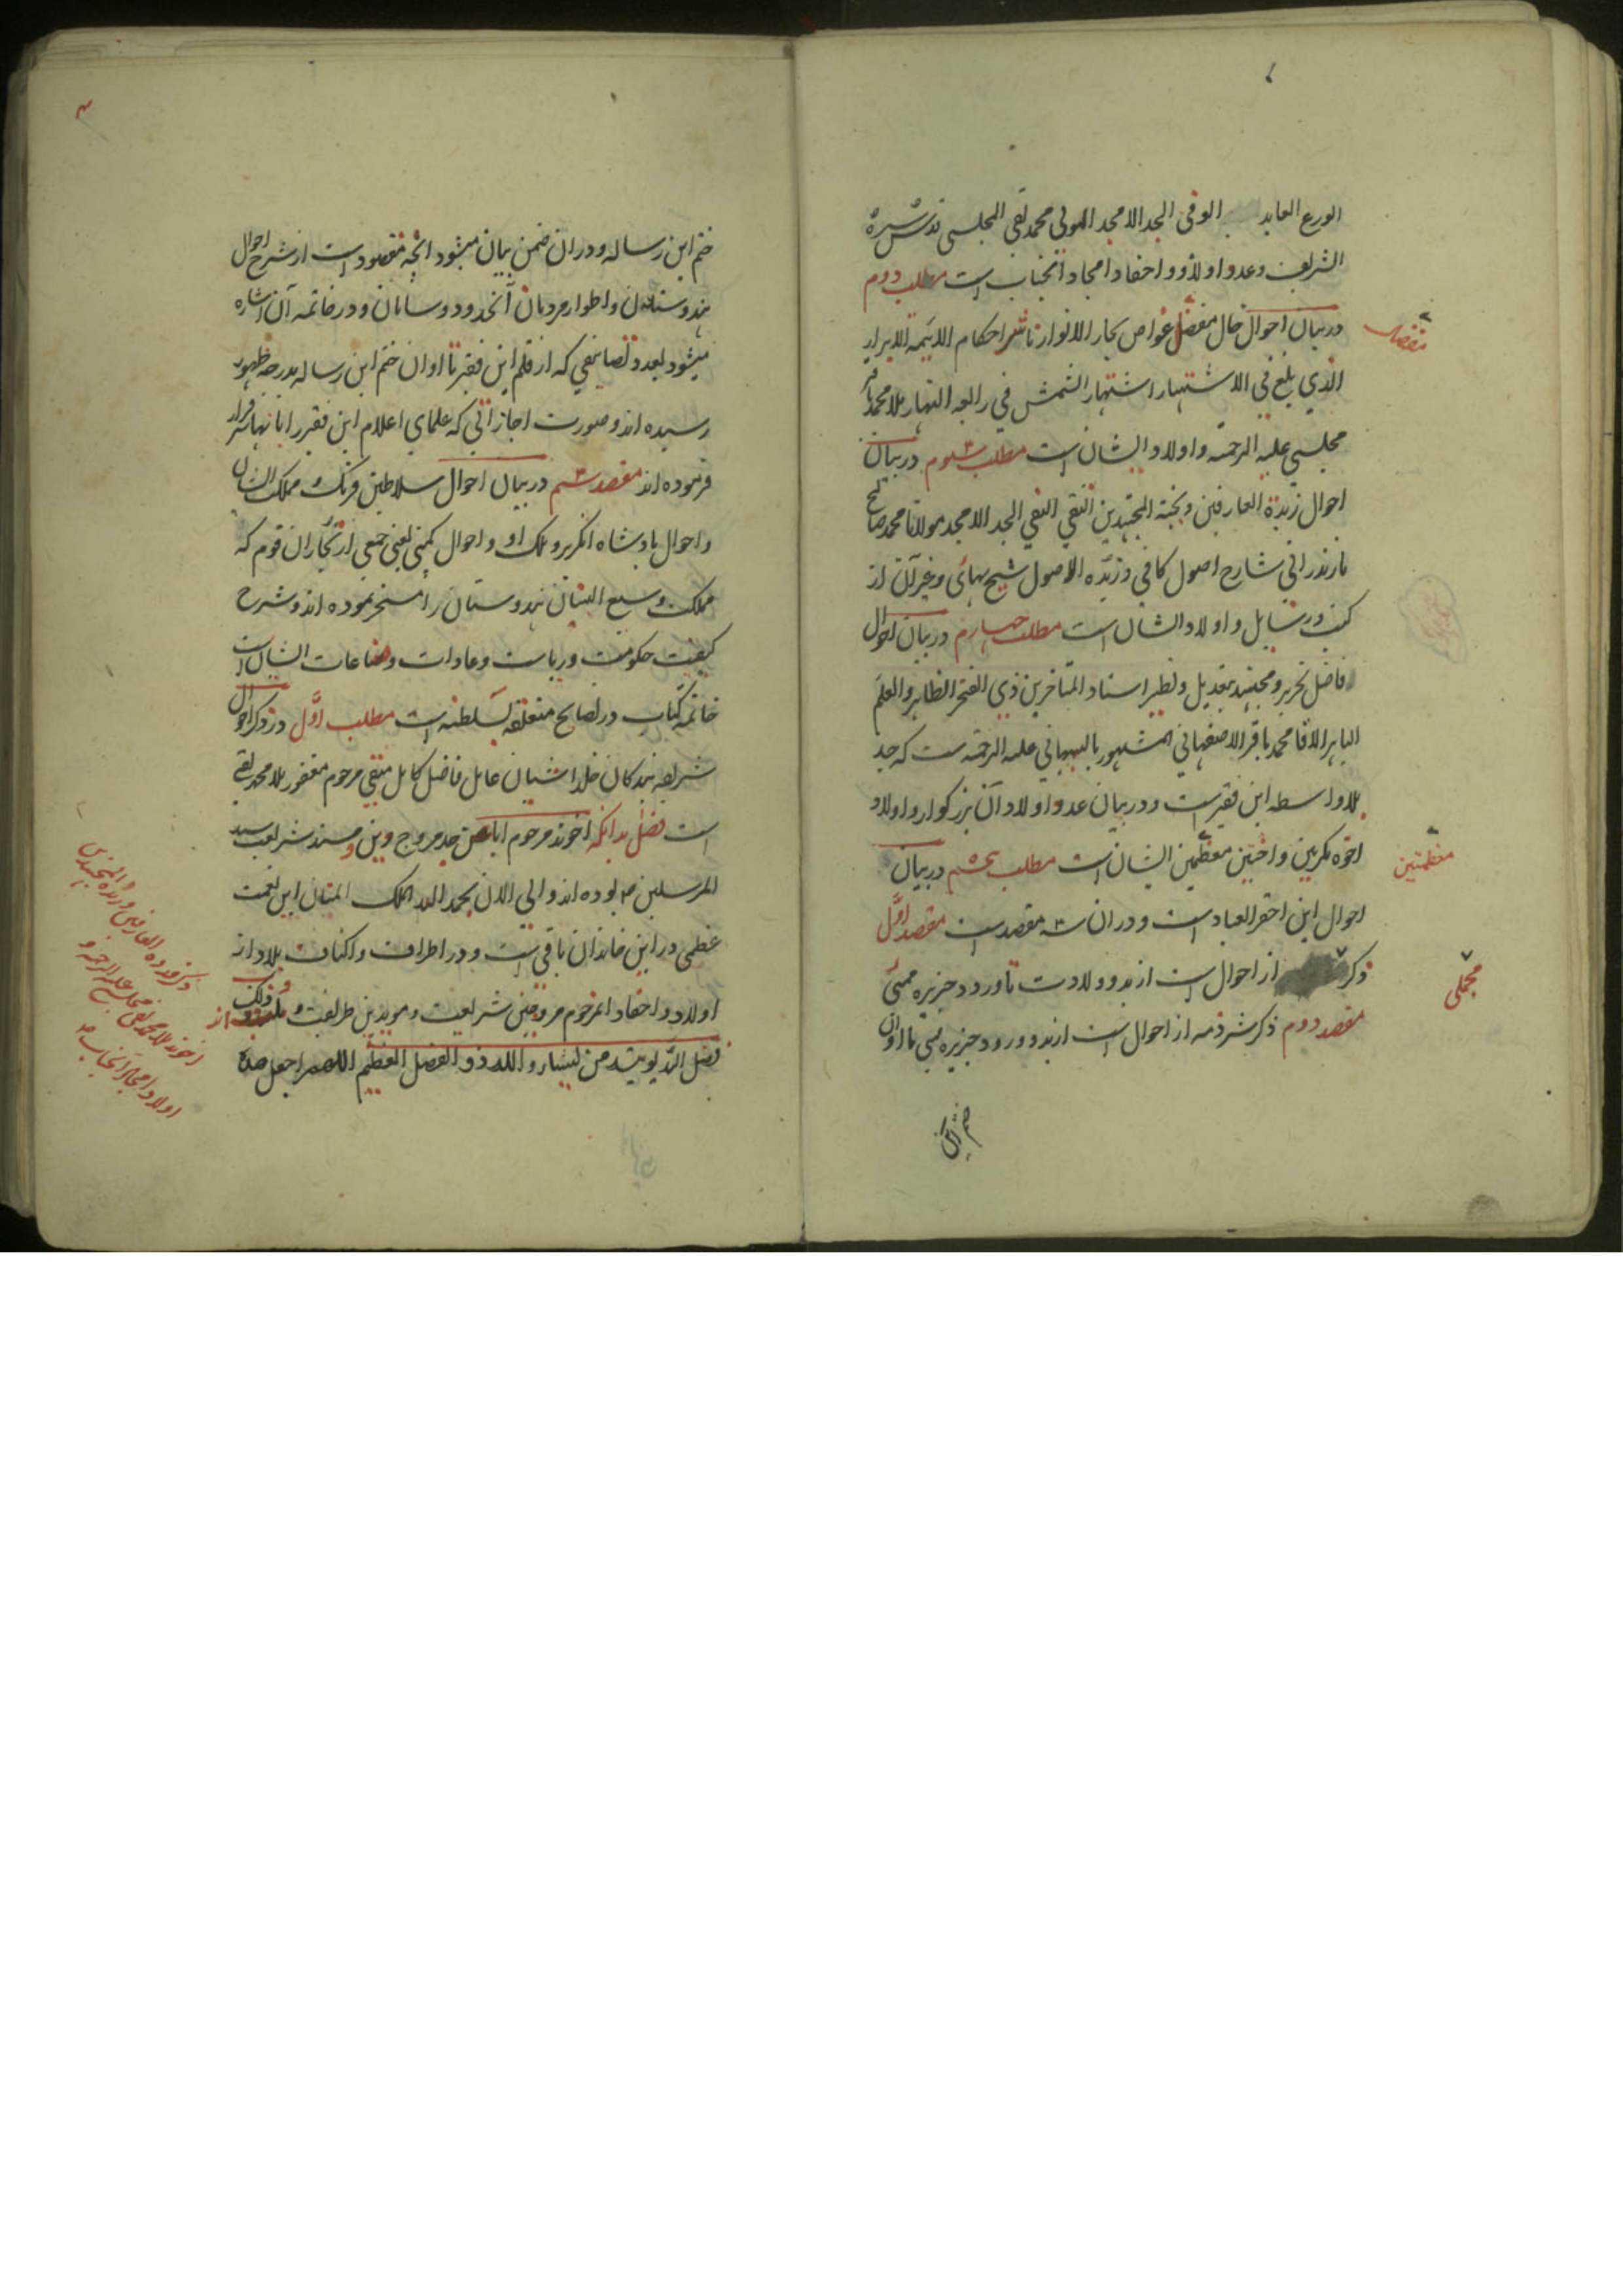 الورع العابد الوفی الجد الامجد المولی محمد تقی المجلسی قدس سره
الشریف و عدد اولاد و احفاد امجاد آنجناب است مطلب دوم
در بیان احوال خال مفضل غواص بحار الانوار ناشر احکام الائمه الابرار
الذی بلغ فی الاشتهار اشتهار الشمس فی رابعة النهار ملا محمد باقر
مجلسی علیه الرحمه و اولاد ایشان است مطلب سیوم در بیان
احوال زبدة العارفین و نخبة المجتهدین التقی النقی الجد الامجد مولانا محمد صالح
مازندرانی شارح اصول کافی و زبده الاصول شیخ بهائی و غیر آن از
کتب و رسایل و اولاد ایشان است مطلب چهارم در بیان احوال
فاضل نحریر و مجتهد بیعدیل و نظیر استاد المتاخرین ذی الفخر الظاهر و العلم
الباهر الاقا محمد باقر الاصفهانی المشهور بالبهبهانی علیه الرحمه ست که جد
بلاواسطه این فقیر است و در بیان عدد اولاد آن بزرکوار و اولاد
اخوه مکرمین و اختین معظمین ایشان است مطلب پنجم در بیان
احوال این احقر العباد است و در ان سه مقصد ست مقصد اول
ذکر از احوال است از بدو ولادت تا ورود جزیره ممبئی
مقصد دوم ذکر شرذمه از احوال است از بدو ورود جزیره ممبی تا اوان
ختم این
مفضال
معظمتین
مجملی
ختم این رساله و در ان ضمن بیان میشود آنچه مقصود است از شرح احوال
هندوستان و اطوار مردمان آنحدود و سامان و در خاتمه آن اشاره
میشود بعدد تصانیفی که از قلم این فقیر تا اوان ختم این رساله بدرجه ظهور
رسیده اند و صورت اجازاتی که علمای اعلام این فقیر را بانها سرفراز
فرموده اند مقصد سیم در بیان احوال سلاطین فرنک و مملکت ایشان
و احوال پادشاه انکریز و ملک او و احوال کمپنی یعنی جمعی از تجاران قوم که
مملکت وسیع البنیان هندوستان را مسخر نموده اند و شرح
کیفیت حکومت و ریاست و عادات و صناعات ایشان است
خاتمه کتاب در نصایح متعلقه بسلطنه است مطلب اول در ذکر احوال
شریفه بندکان خلد اشیان عامل فاضل کامل متقی مرحوم مغفور ملا محمد تقی
است فصل بدانکه اخوند مرحوم ابا عن جد مروج دین و مسند شریعت سید
المرسلین ص بوده اند و الی الان بحمد الله الملک المنان این نعمت
عظمی در این خاندان باقی است و در اطراف و اکناف بلاد از
اولاد و احفاد انمرحوم مروجین شریعت و مویدین طریقت و اند و ذلک
فضل الله یوتیه من یشاء و الله ذو الفضل العظیم اللهم اجعل هذه
ذکر زبده العارفین و المجتهدین
اخوند ملا محمد تقی مجلسی علیه الرحمه و
اولاد امجاد آنجناب